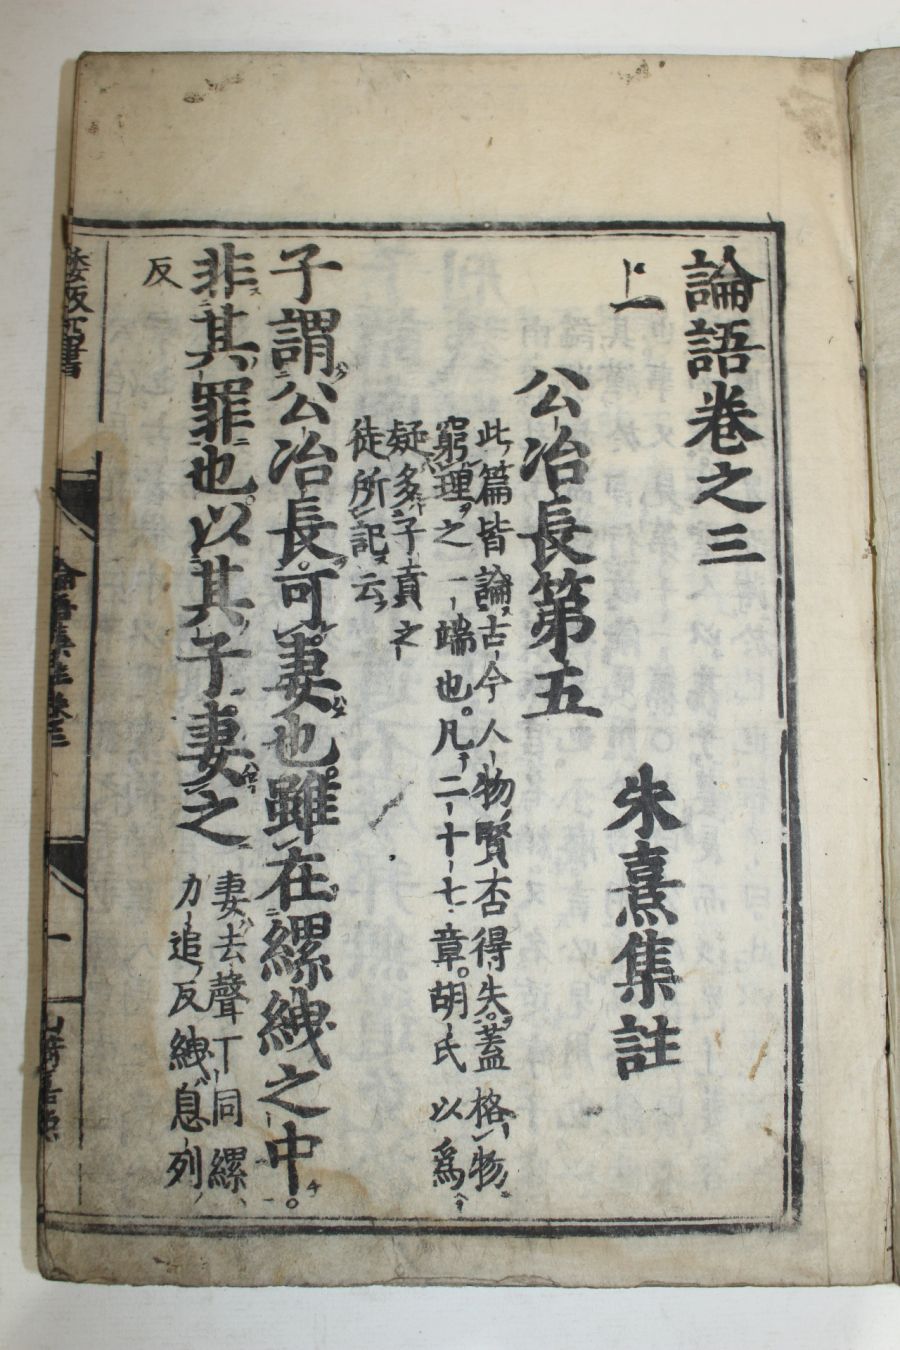 論語卷之三
上一
朱熹集註
公冶長第五
此篇皆論古今人物賢否得失。蓋格物
窮理之一端也。凡二十七章。胡氏以爲
疑多子貢之
徒所記云
子謂公冶長。可妻也。雖在縲絏之中。
非其罪也。以其子妻之
妻去聲下同縲
力追反絏息列
反
論語集註卷三
一